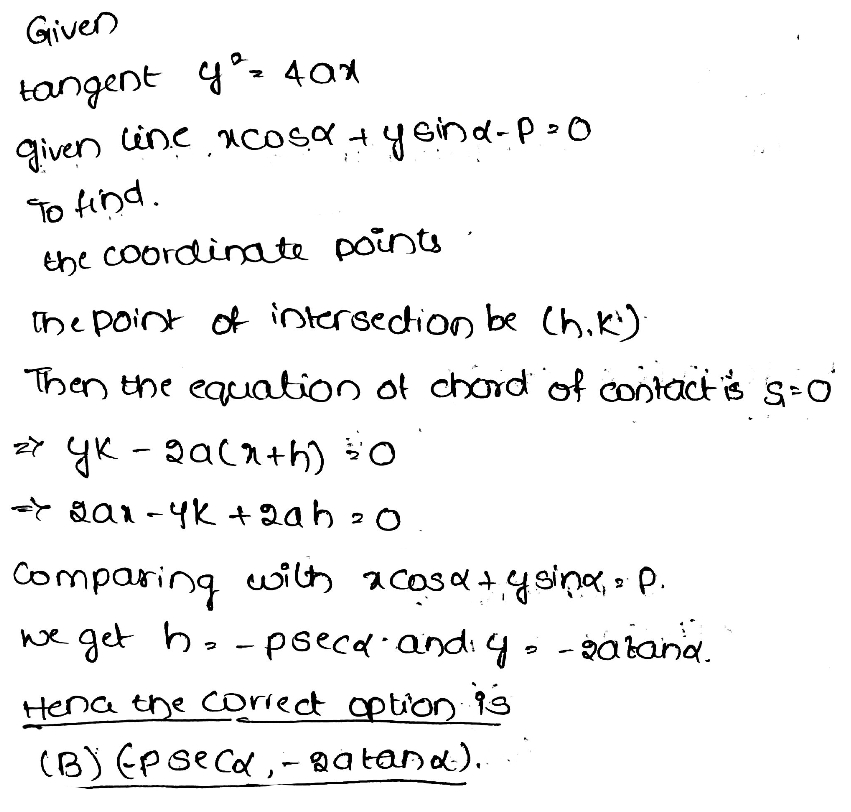 Given
tangent y² = 4ax
given line xcosα + ysinα - P = 0
To find.
the coordinate points
The point of intersection be (h,k)
Then the equation of chord of contact is S₁=0
⇒ yk - 2a(x+h) = 0
⇒ 2ax - yk + 2ah = 0
Comparing with xcosα + ysinα = P.
we get h = -psecα and y = -2atanα.
Hence the correct option is
(B) (-psecα, -2atanα).